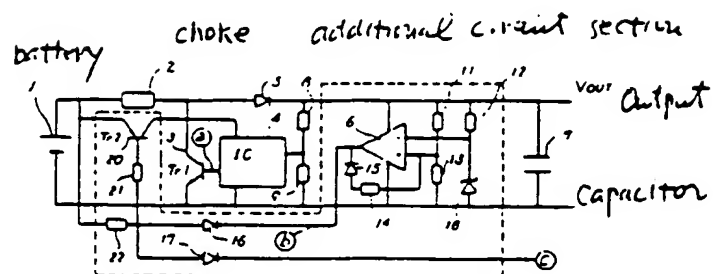 choke additional circuit section
battery
1
2
5
8
11
12
VOUT Output
4
6
7
3
Tr2
20
Tr1
a
IC
15
13
21
9
14
18
Capacitor
22
16
b
17
c